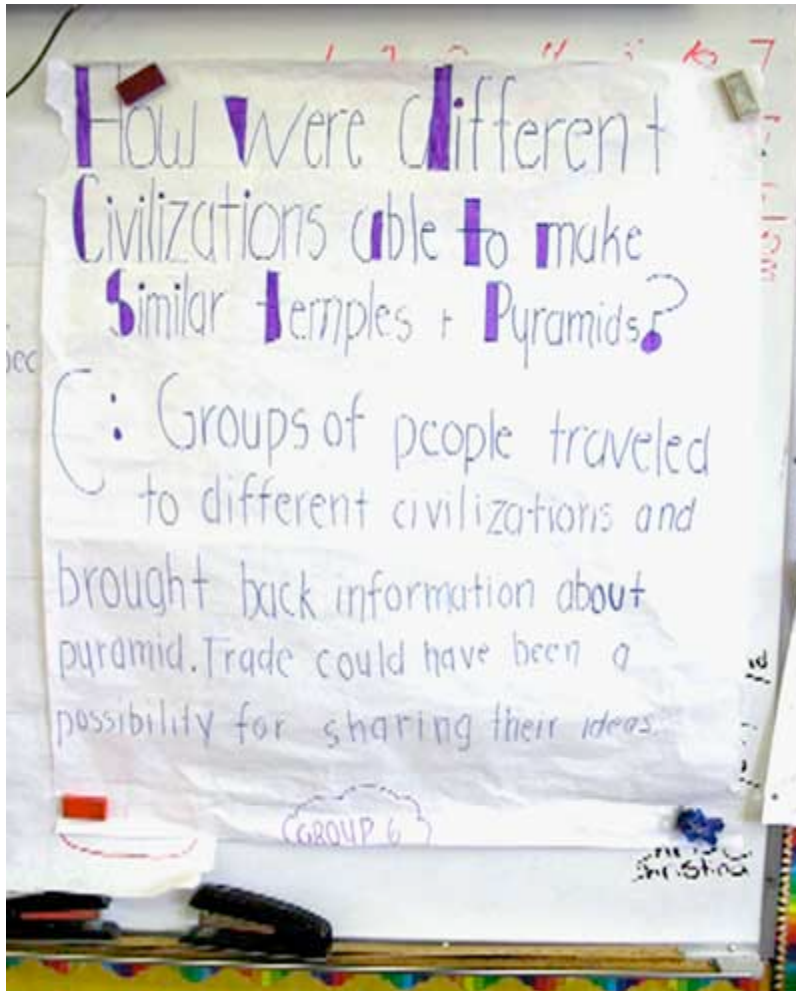 1 2 3 4 5 6 7
How Were different
Civilizations able to make
Similar temples + Pyramids?
C: Groups of people traveled
to different civilizations and
brought back information about
pyramid. Trade could have been a
possibility for sharing their ideas.
GROUP 6
Christina